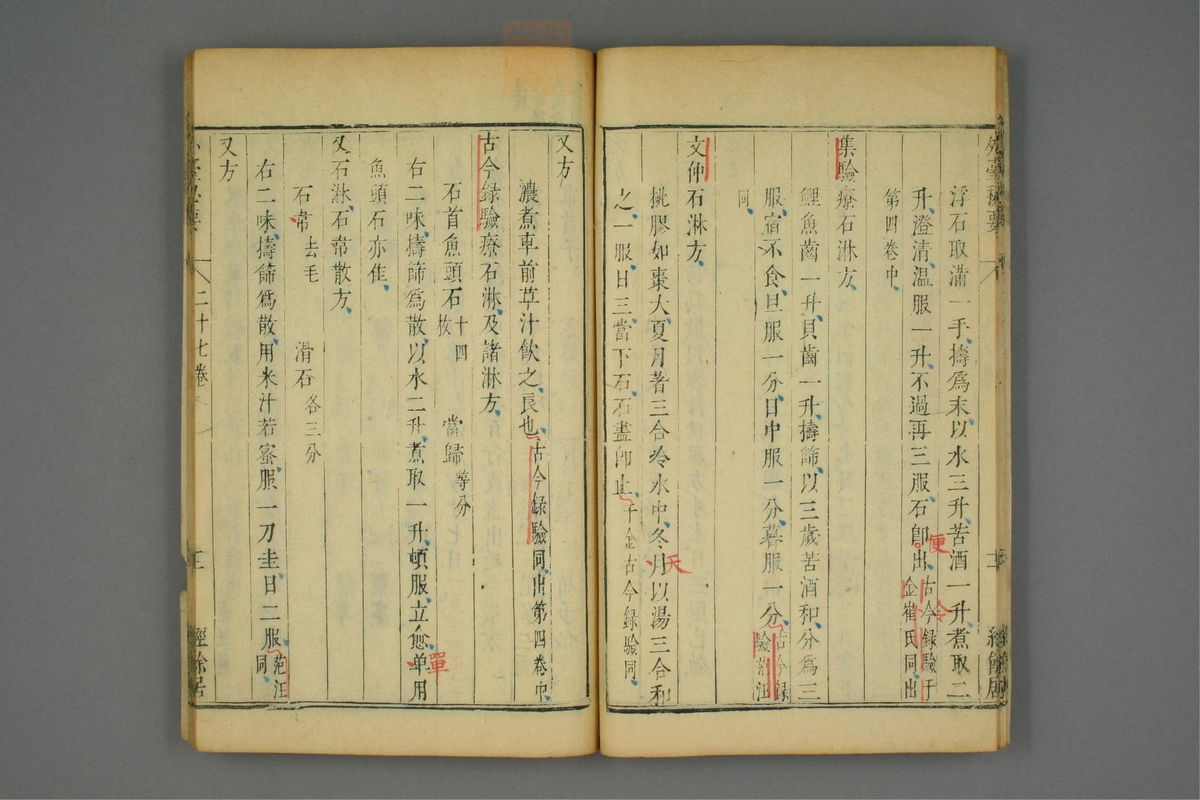 外臺秘要
經餘居
浮石取滿一手擣爲末以水三升苦酒一升煮取二
升澄清溫服一升不過再三服石卽出古今録驗千金崔氏同出
便
令
第四卷中
集驗療石淋方
鯉魚齒一升貝齒一升擣篩以三歲苦酒和分爲三
服宿不食旦服一分日中服一分暮服一分古今録驗范汪
同
文仲石淋方
桃膠如棗大夏月著三合冷水中冬月以湯三合和
天
之一服日三當下石石盡卽止千金古今録驗同
又方
濃煮車前草汁飲之良也古今録驗同出第四卷中
古今録驗療石淋及諸淋方
石首魚頭石十四枚 當歸等分
右二味擣篩爲散以水二升煮取一升頓服立愈单用
單
魚頭石亦佳
又石淋石常散方
石常去毛 滑石各三分
右二味擣篩爲散用米汁若蜜服一刀圭日二服范汪同
又方
外臺秘要 二十七卷 經餘居